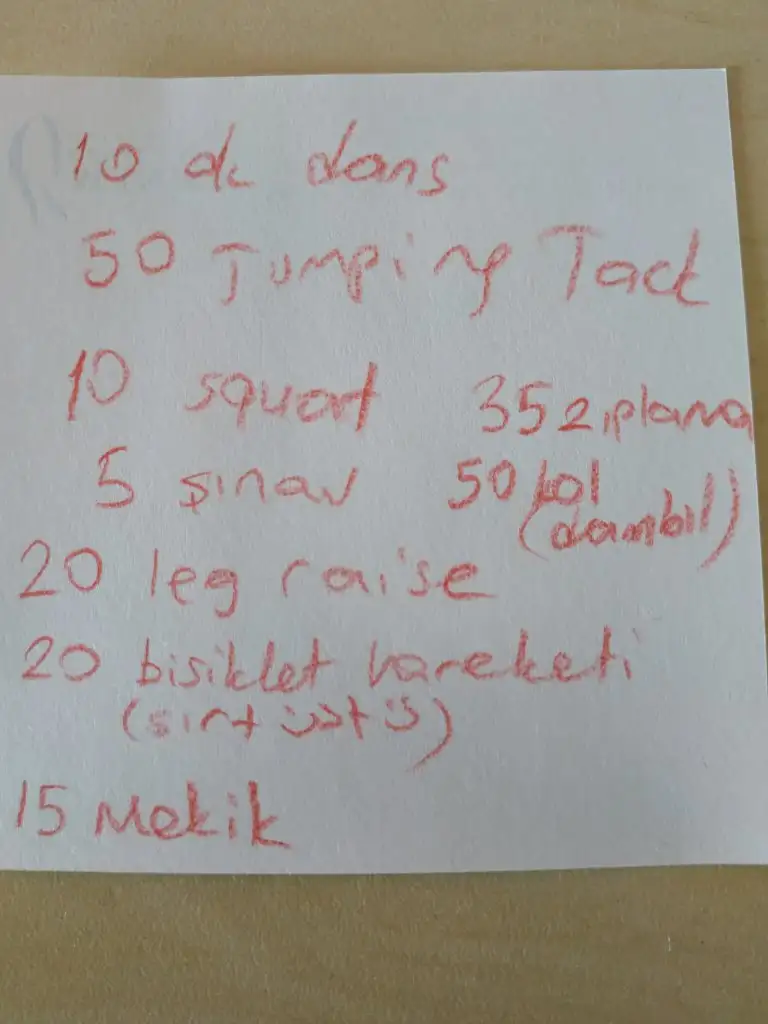 10 dk dans
50 Jumping Jack
10 squat 35 zıplama
5 şınav 50 kol
(dambıl)
20 leg raise
20 bisiklet hareketi
(sırt üstü)
15 Mekik